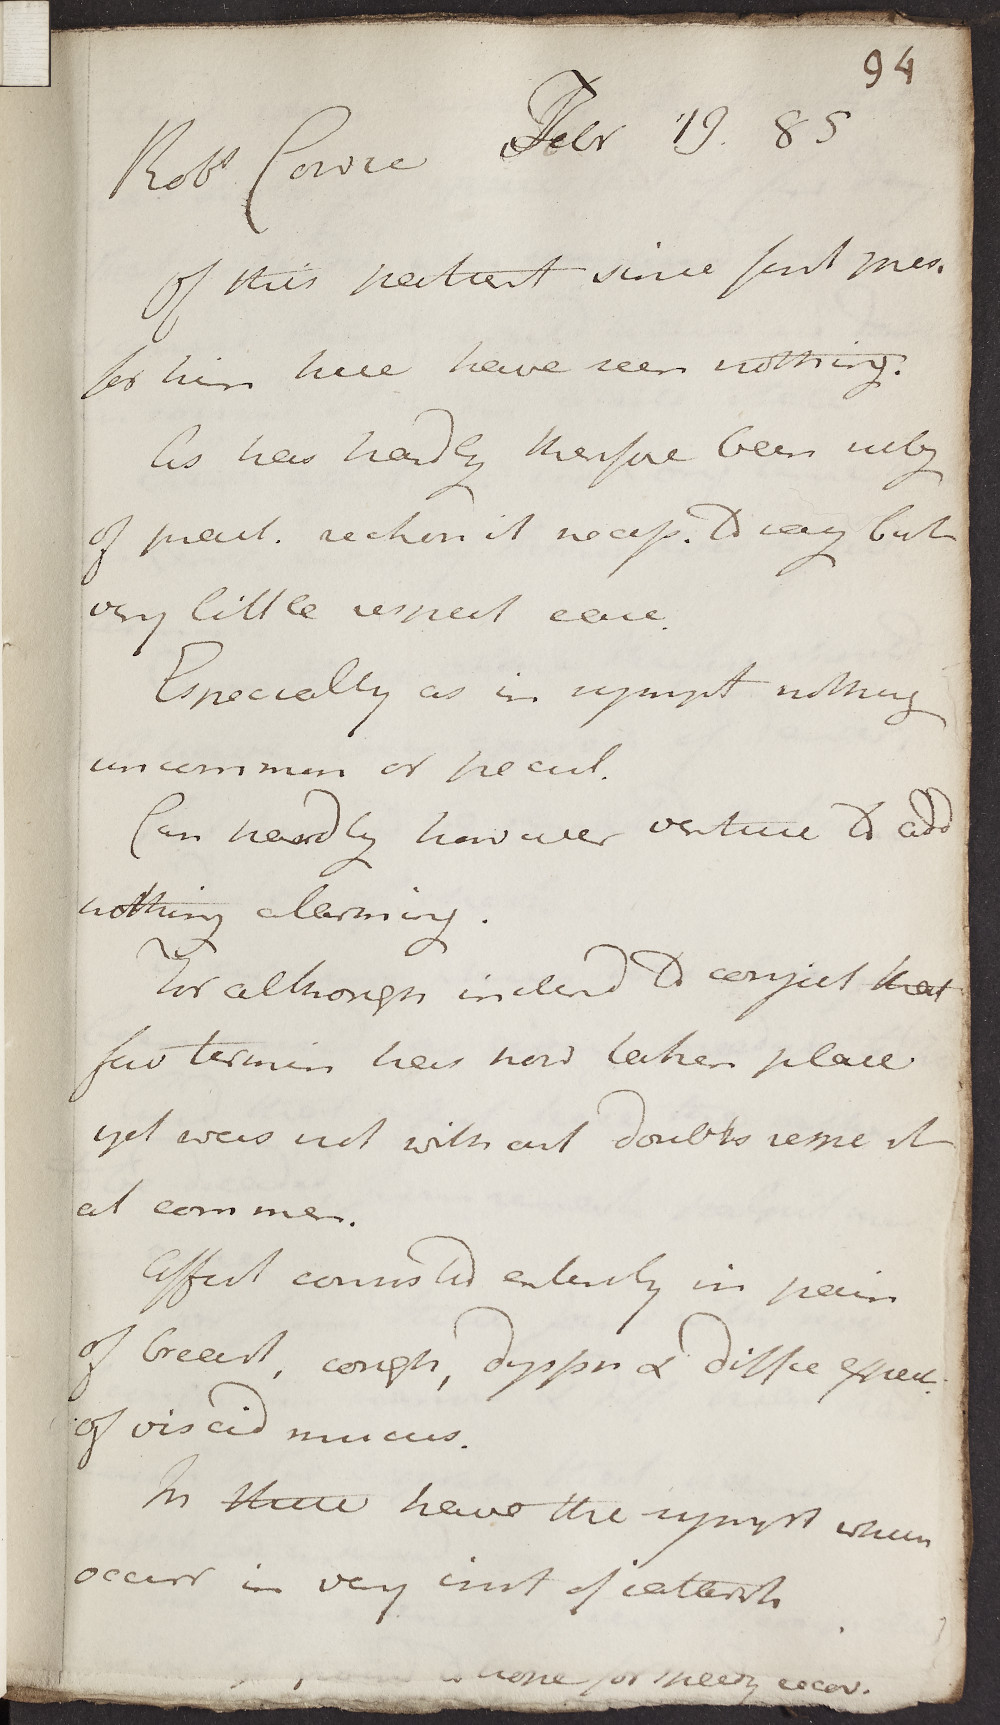 94
Robt Cowie Febr 19. 85
Of this patient since first pres.
for him here have seen nothing.
As has hardly therefore been subj
of pract. reckon it necess. to say but
very little respect case.
Especially as in sympt nothing
uncommon or pecul.
Can hardly however venture to add
nothing alarming.
For although inclined to conject that
fav termin has now taken place
yet was not without doubts respe it
at commen.
Affect consisted entirely in pain
of breast, cough, dyspn & diffic expect.
of viscid mucus.
In these have the sympt when
occurr in very inst of catarrh
hope for speedy recov.